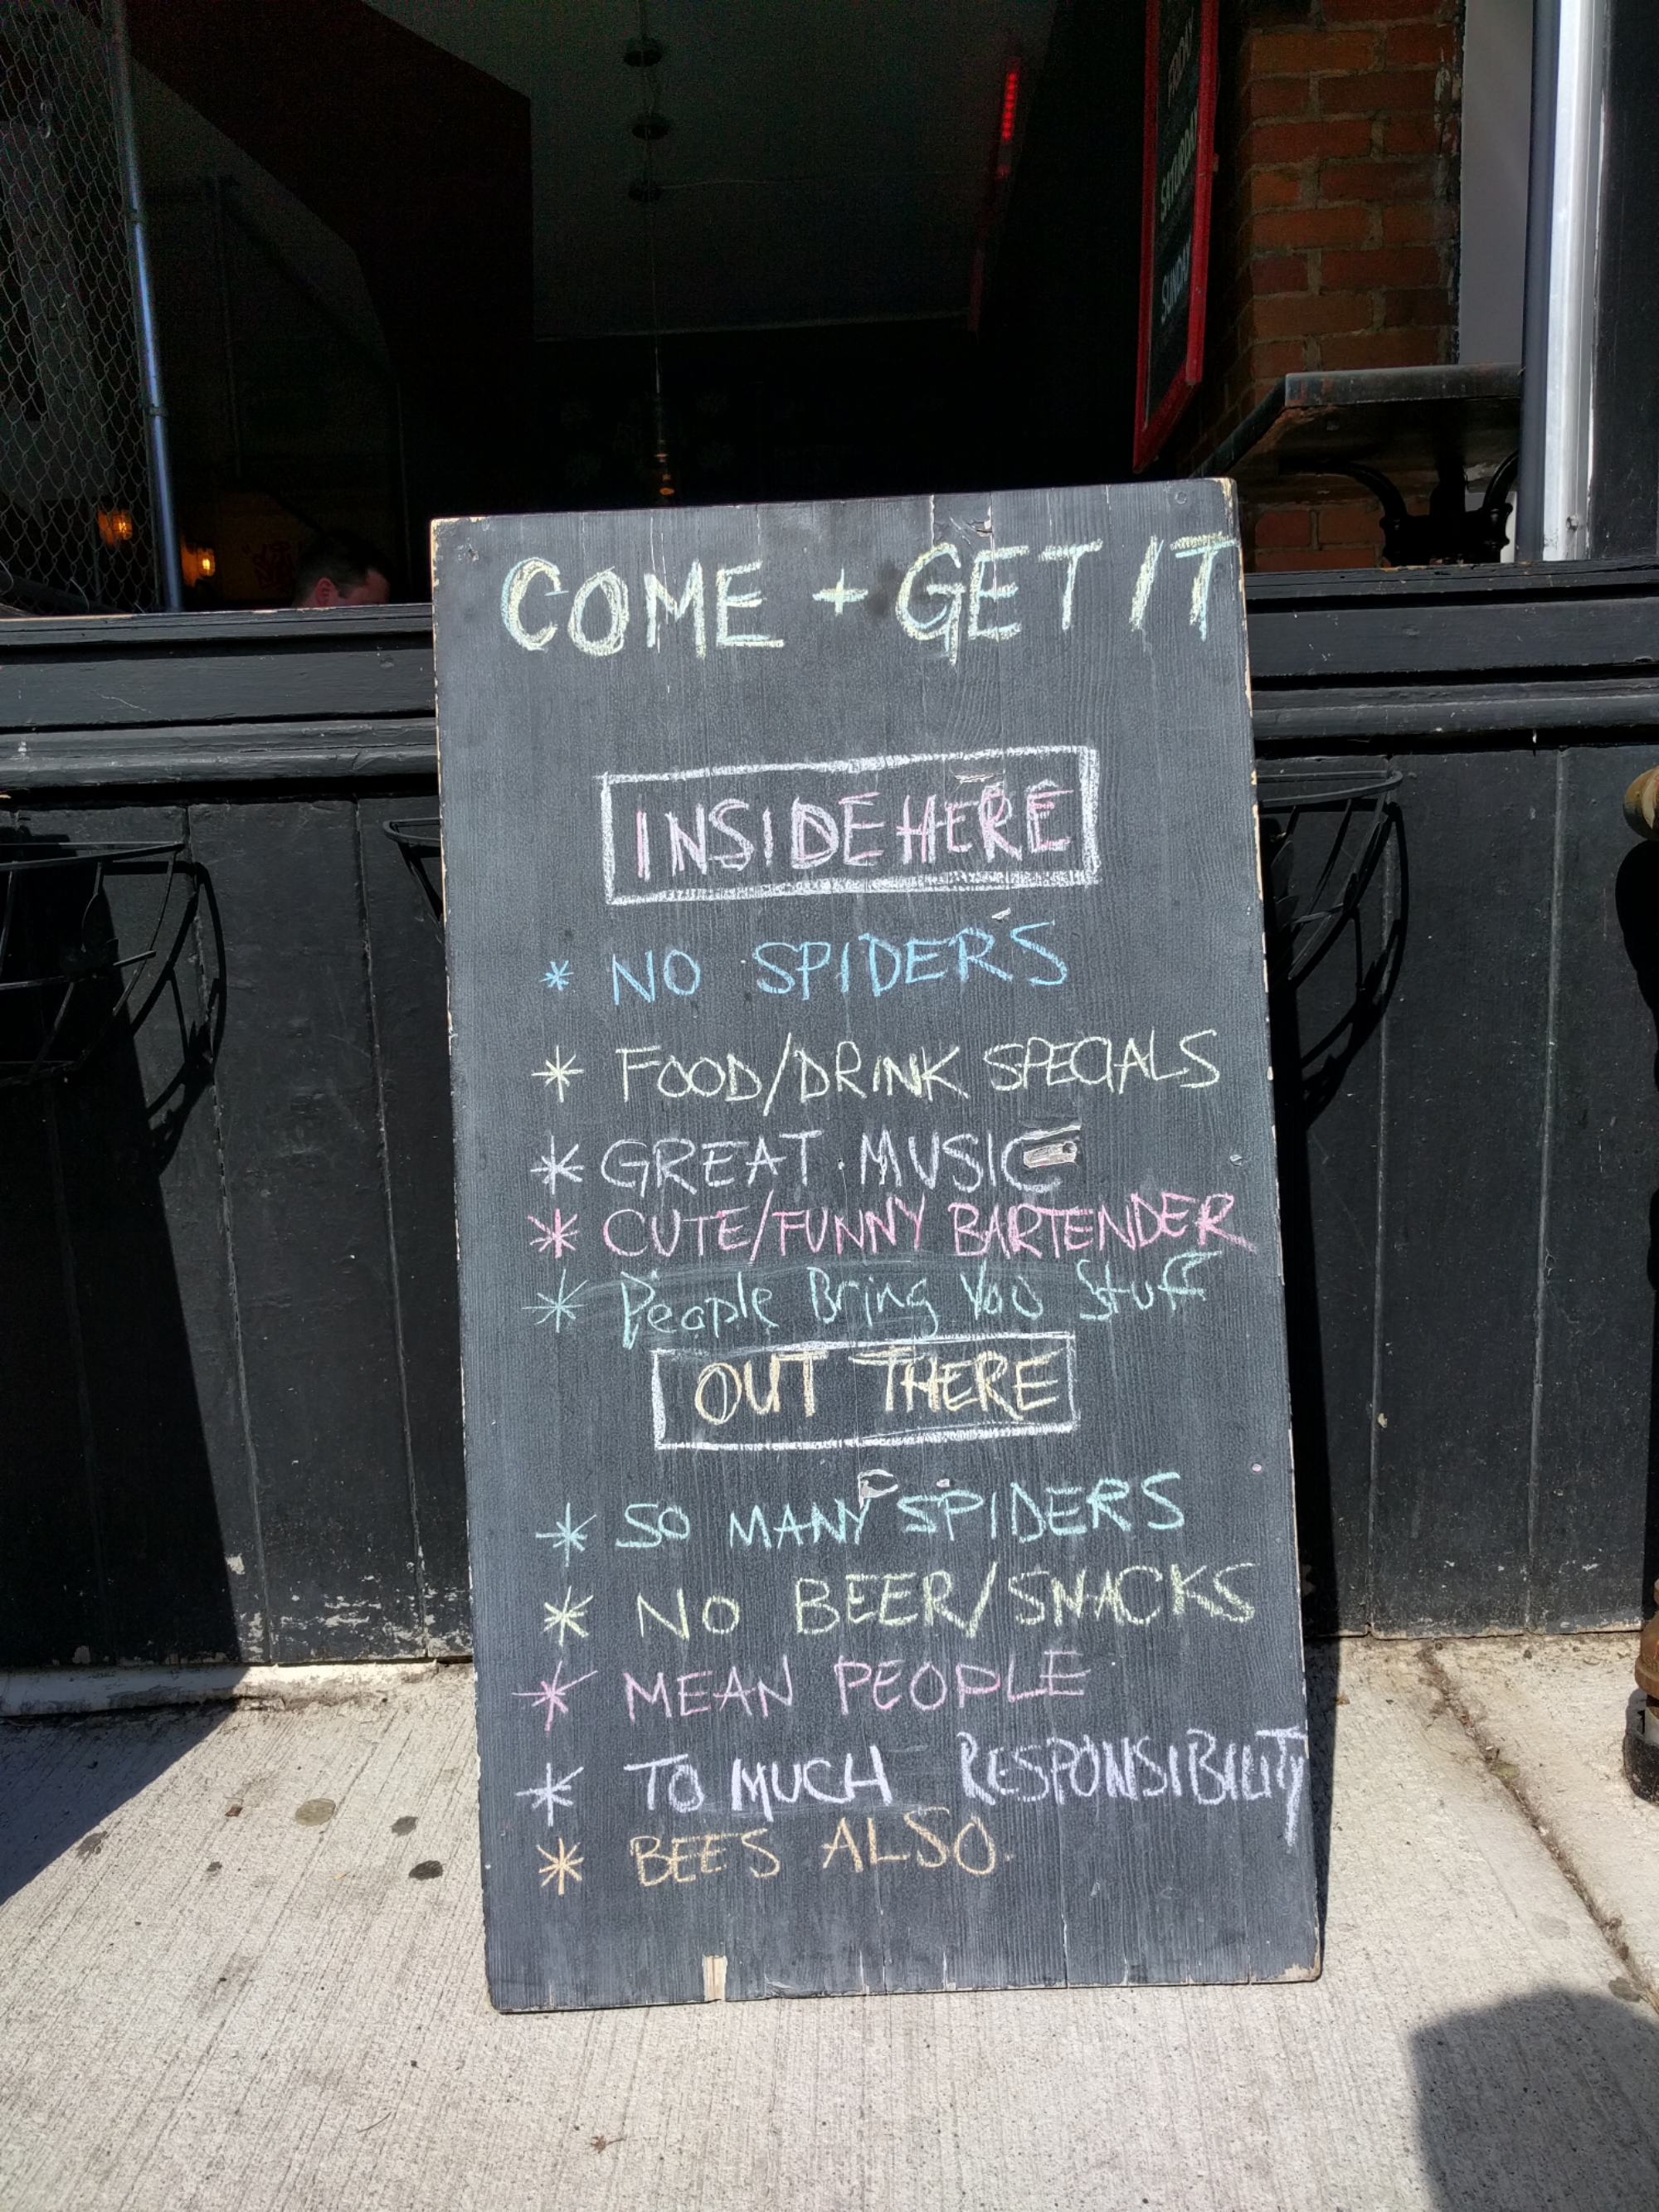 FRIDAY
SATURDAY
SUNDAY
COME + GET IT
INSIDE HERE
* NO SPIDERS
* FOOD/DRINK SPECIALS
* GREAT MUSIC
* CUTE/FUNNY BARTENDER
* People Bring You Stuff
OUT THERE
* SO MANY SPIDERS
* NO BEER/SNACKS
* MEAN PEOPLE
* TO MUCH RESPONSIBILITY
* BEES ALSO.